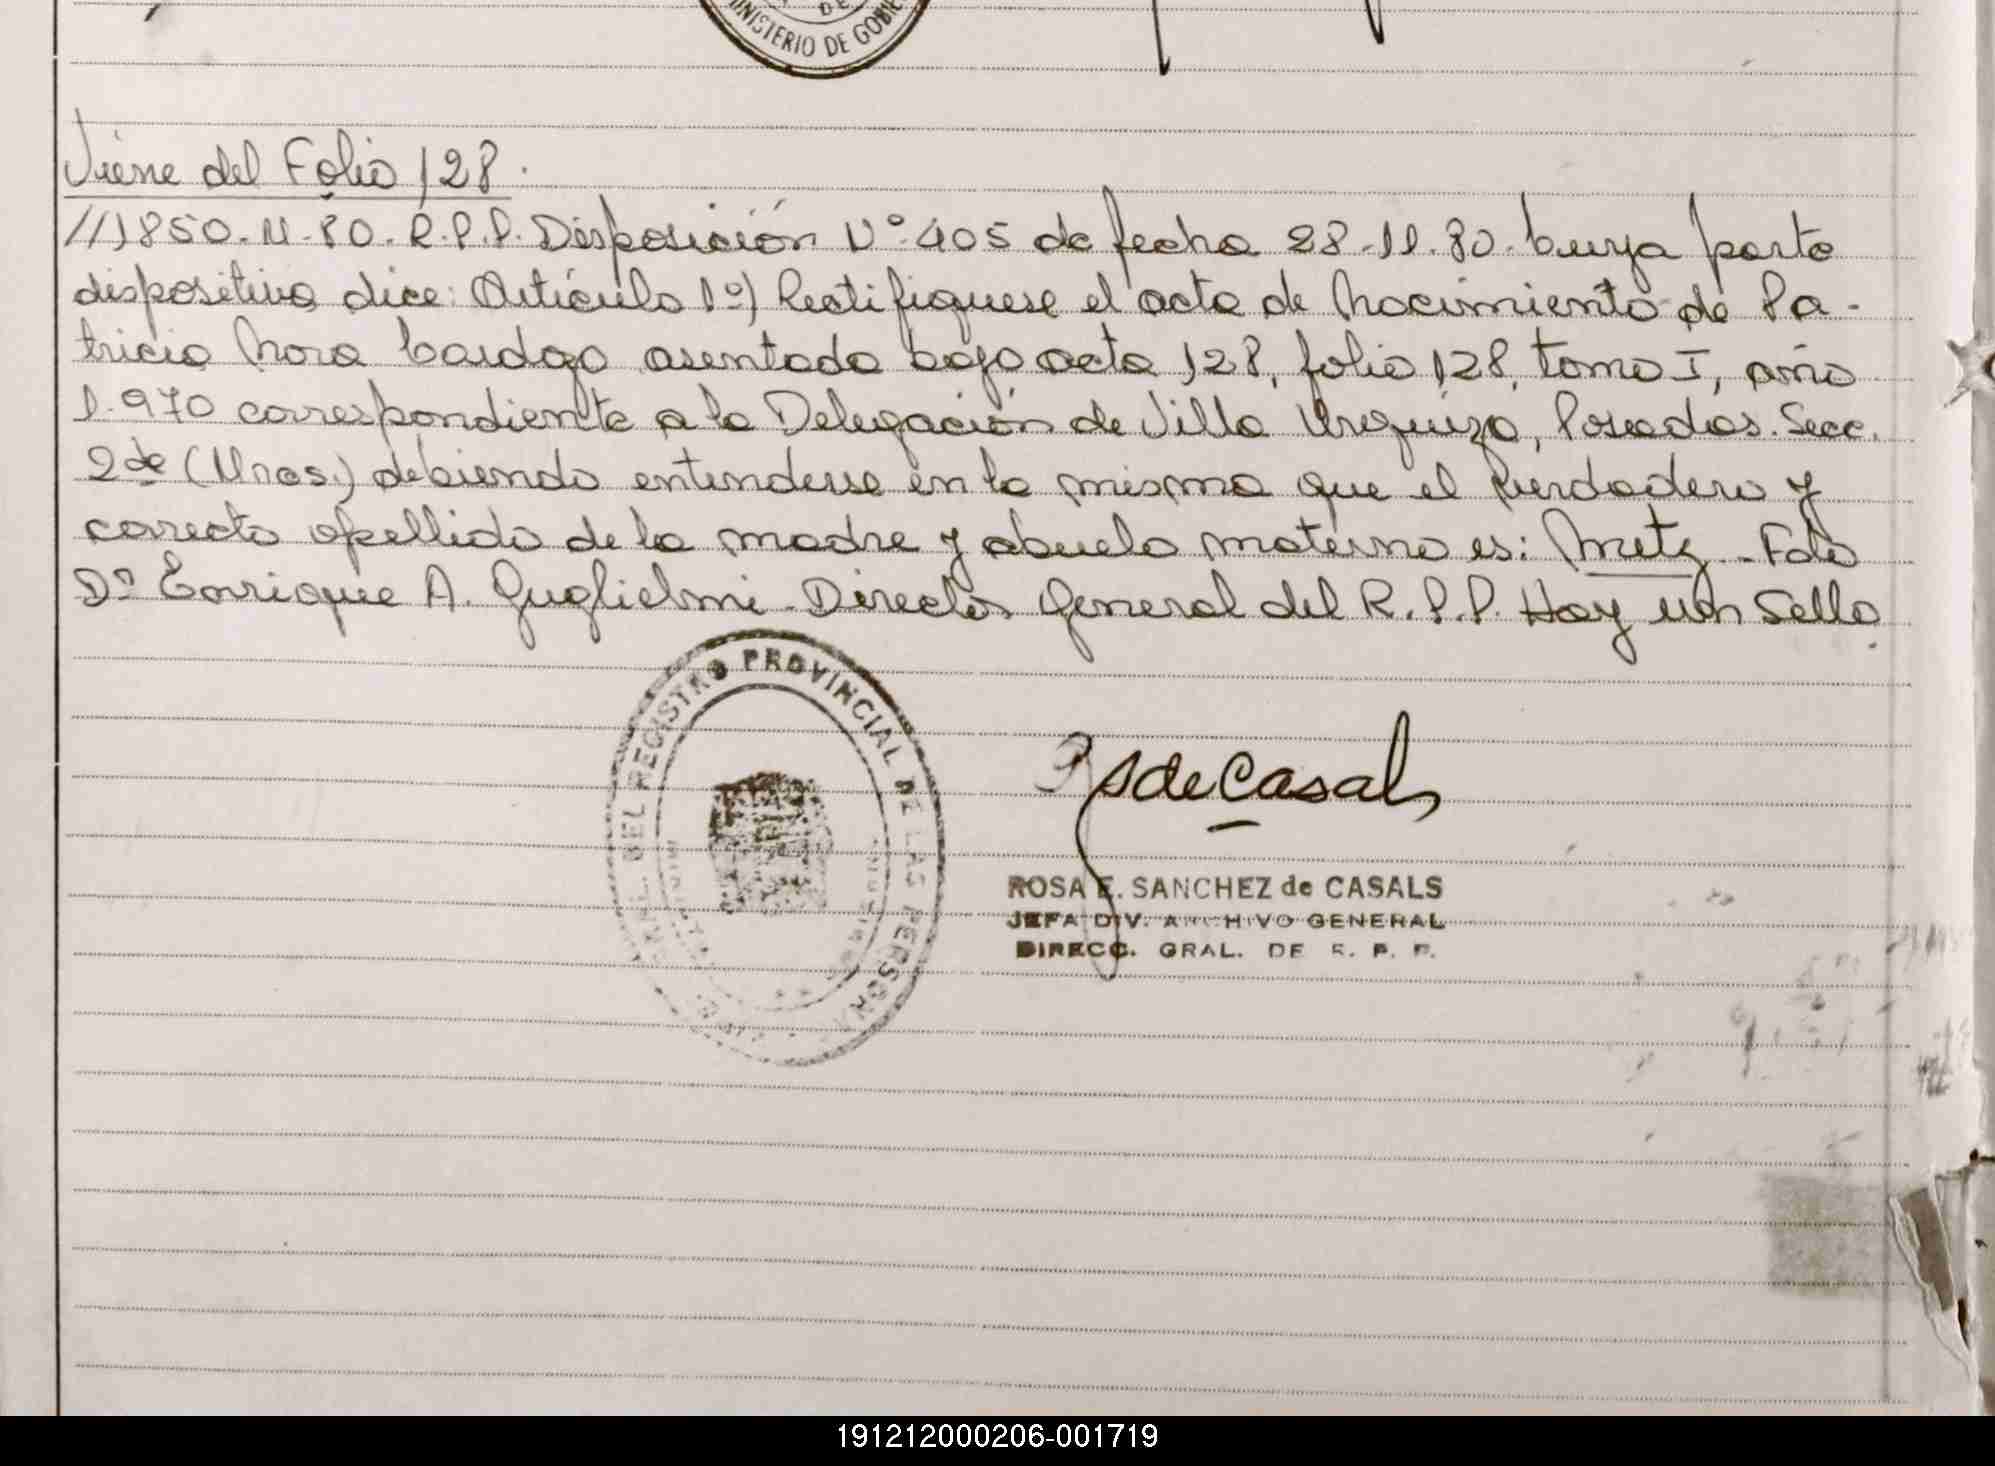 MINISTERIO DE GOBIE
DE
Viene del Folio 128.
//)850-M-80.R.P.P. Disposición N° 405 de fecha 28.11.80. Cuya parte
dispositiva dice: Artículo 1°) Rectifiquese el acta de Nacimiento de Pa-
tricia Nora Cardozo asentada bajo acta 128, folio 128, tomo I, año
1.970 correspondiente a la Delegación de Villa Urquiza, Posadas. Secc.
2da (Mnes.) debiendo entenderse en la misma que el verdadero y
correcto apellido de la madre y abuelo materno es: Metz - Fdo
Dn Enrique A. Guglielmi - Director General del R.P.P. Hay un Sello.
DEL REGISTRO PROVINCIAL DE LAS PERSONA
RsdeCasals
ROSA E. SANCHEZ de CASALS
JEFA DIV. ARCHIVO GENERAL
DIRECC. GRAL. DE R. P. P.
191212000206-001719